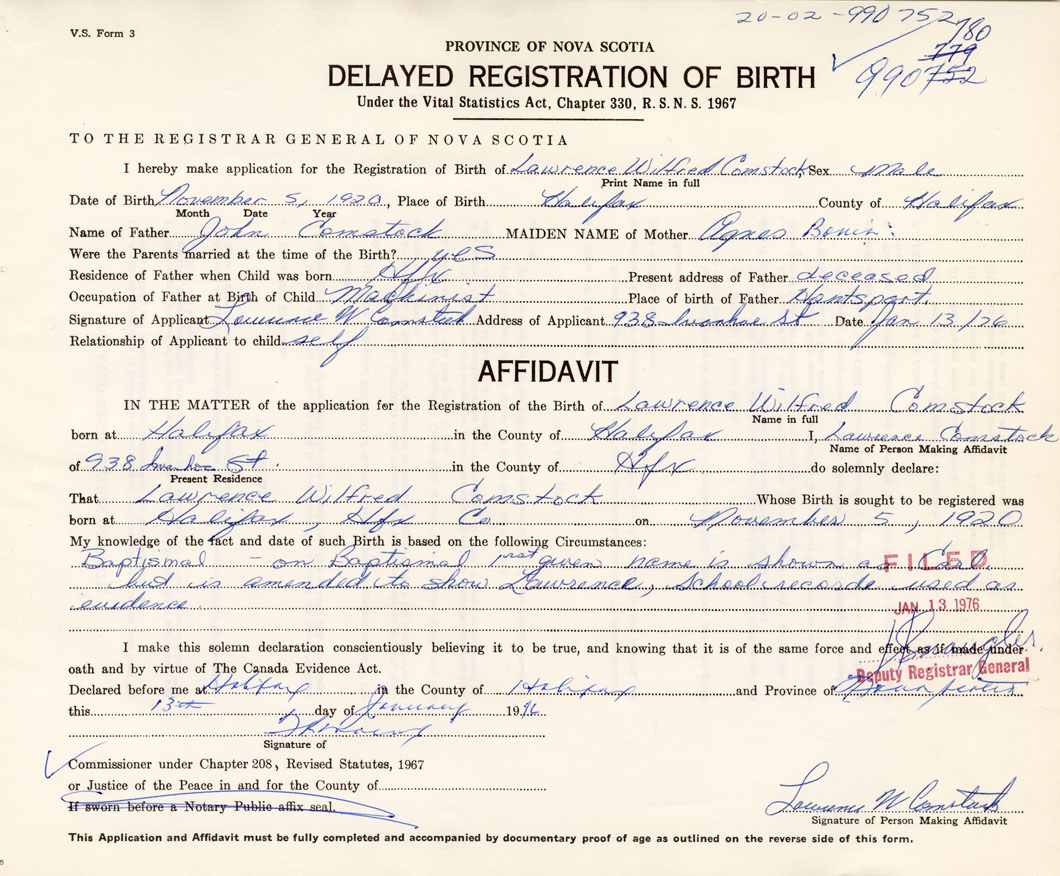 20-02-990752
V.S. Form 3
780
779
990752
PROVINCE OF NOVA SCOTIA
DELAYED REGISTRATION OF BIRTH
Under the Vital Statistics Act, Chapter 330, R. S. N. S. 1967
TO THE REGISTRAR GENERAL OF NOVA SCOTIA
I hereby make application for the Registration of Birth of Lawrence Wilfred Comstock, Sex Male
Print Name in full
Date of Birth November 5, 1920, Place of Birth Halifax County of Halifax
Month Date Year
Name of Father John Comstock MAIDEN NAME of Mother Agnes
Were the Parents married at the time of the Birth? yes
Residence of Father when Child was born Hfx Present address of Father deceased
Occupation of Father at Birth of Child Machinist Place of birth of Father Hantsport.
Signature of Applicant Lawrence W Comstock Address of Applicant 938 St Date Jan 13/76
Relationship of Applicant to child self
AFFIDAVIT
IN THE MATTER of the application for the Registration of the Birth of Lawrence Wilfred Comstock
Name in full
born at Halifax in the County of Halifax I, Lawrence Comstock
Name of Person Making Affidavit
of 938 St. in the County of Hfx do solemnly declare:
Present Residence
That Lawrence Wilfred Comstock Whose Birth is sought to be registered was
born at Halifax, Hfx Co on November 5, 1920
My knowledge of the fact and date of such Birth is based on the following Circumstances:
Baptismal - on Baptismal 1st given name is shown as Carl
FILED
but is amended to show Lawrence, School records used as
evidence.
JAN 13 1976
I make this solemn declaration conscientiously believing it to be true, and knowing that it is of the same force and effect as if made under
oath and by virtue of The Canada Evidence Act.
Deputy Registrar General
Declared before me at Halifax in the County of Halifax and Province of Nova Scotia
this 13th day of January 1976
Signature of
Commissioner under Chapter 208, Revised Statutes, 1967
or Justice of the Peace in and for the County of
If sworn before a Notary Public affix seal.
Lawrence W Comstock
Signature of Person Making Affidavit
This Application and Affidavit must be fully completed and accompanied by documentary proof of age as outlined on the reverse side of this form.